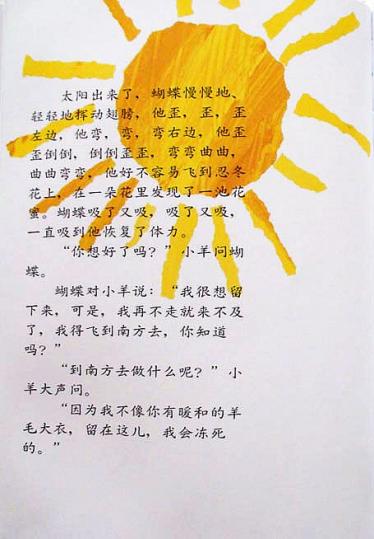 太阳出来了，蝴蝶慢慢地、
轻轻地挥动翅膀，他歪，歪，歪
左边，他弯，弯，弯右边，他歪
歪倒倒，倒倒歪歪，弯弯曲曲，
曲曲弯弯，他好不容易飞到忍冬
花上，在一朵花里发现了一池花
蜜。蝴蝶吸了又吸，吸了又吸，
一直吸到他恢复了体力。
“你想好了吗？”小羊问蝴
蝶。
蝴蝶对小羊说：“我很想留
下来，可是，我再不走就来不及
了，我得飞到南方去，你知道
吗？”
“到南方去做什么呢？”小
羊大声问。
“因为我不像你有暖和的羊
毛大衣，留在这儿，我会冻死
的。”